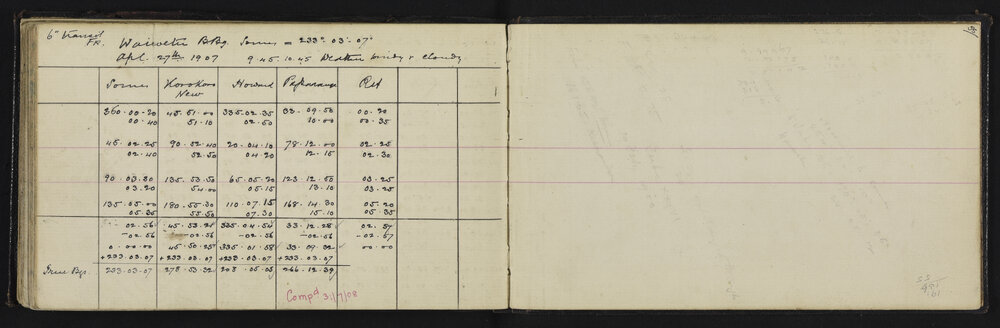 6" transit
FR. Waiwetu Brg. Somes = 233° 03' 07"
Apl. 27th 1907 9.45.10.45 Weather windy & cloudy
Somes Korokoro New Howard Ret
360.00.20 45.51.00 335.02.35 33.09.50 00.20
00.40 51.10 02.50 10.00 00.35
45.02.25 90.52.40 20.04.10 78.12.00 02.25
02.40 52.50 04.20 12.15 02.30
90.03.30 135.53.50 65.05.20 123.12.50 03.25
03.20 54.00 05.15 13.10 03.25
135.05.00 180.55.30 110.07.15 168.14.30 05.20
05.35 55.50 07.30 15.10 05.35
02.56 45.53.21 335.04.54 33.12.28 02.57
-02.56 -02.56 -02.56 -02.56 -02.57
0.00.00 45.50.25 335.01.58 33.09.32 00.00
+233.03.07 +233.03.07 +233.03.07 +233.03.07
True Bgs. 233.03.07 278.53.32 208.05.05 266.12.39
Compd 31/7/08